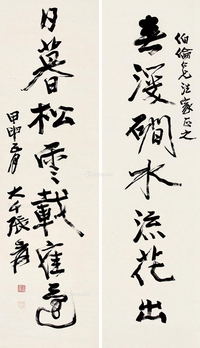 春深磵水流花出
伯倫仁兄法家正之
日暮松雲載鶴還
甲申五月 大千張爰